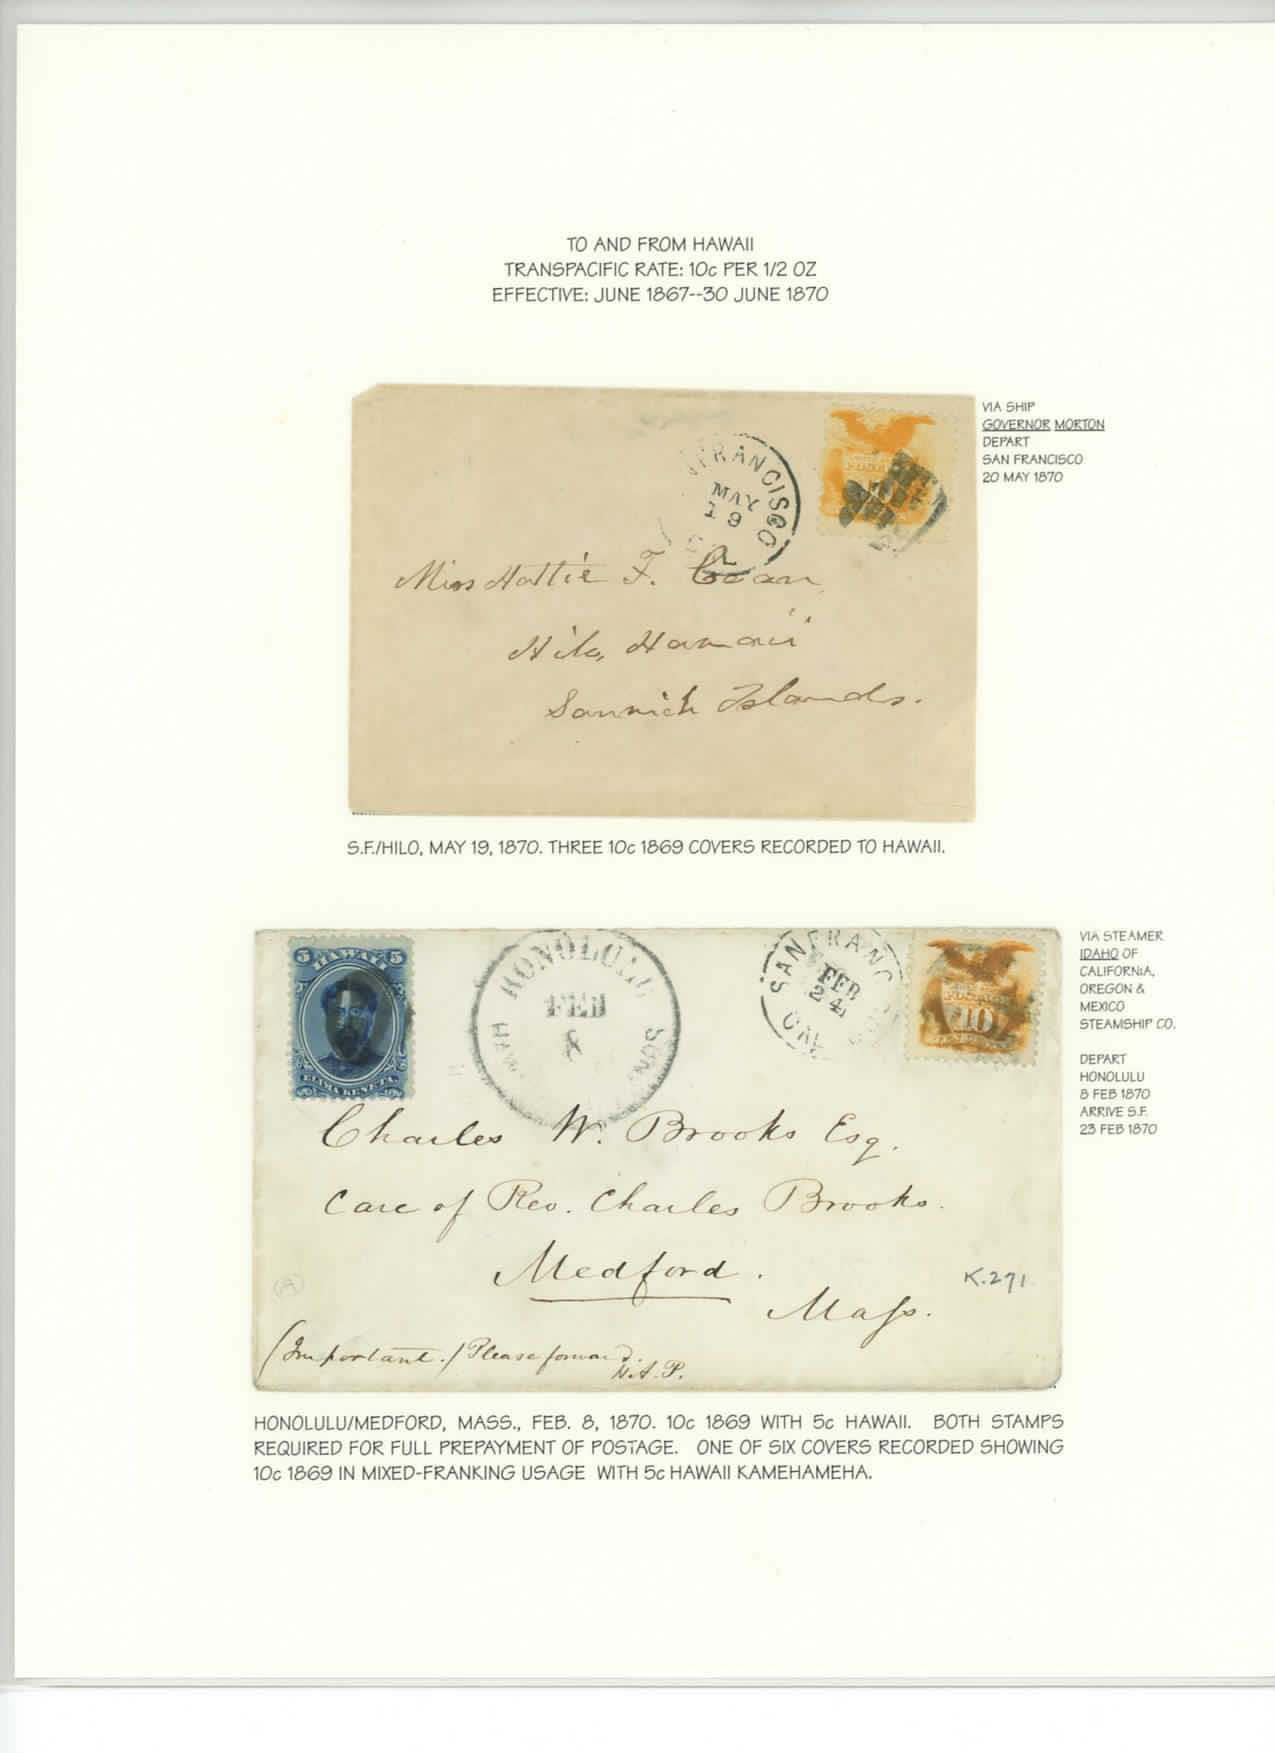 TO AND FROM HAWAII
TRANSPACIFIC RATE: 10c PER 1/2 OZ
EFFECTIVE: JUNE 1867--30 JUNE 1870
VIA SHIP
GOVERNOR MORTON
DEPART
SAN FRANCISCO
20 MAY 1870
FRANCISCO
MAY
19
Miss Hattie F. Coan
Hilo, Hawaii
Sanwich Islands.
S.F./HILO, MAY 19, 1870. THREE 10c 1869 COVERS RECORDED TO HAWAII.
5 5
HAWAII
ELIMA KENETA
HONOLULU
FEB
8
SAN FRANC
FEB
24
CAL
10
VIA STEAMER
IDAHO OF
CALIFORNIA,
OREGON &
MEXICO
STEAMSHIP CO.
DEPART
HONOLULU
8 FEB 1870
ARRIVE S.F.
23 FEB 1870
Charles W. Brooks Esq.
Care of Rev. Charles Brooks.
Medford.
Mass.
K.271
(A)
(Important.) Please forward.
H.A.P.
HONOLULU/MEDFORD, MASS., FEB. 8, 1870. 10c 1869 WITH 5c HAWAII. BOTH STAMPS
REQUIRED FOR FULL PREPAYMENT OF POSTAGE. ONE OF SIX COVERS RECORDED SHOWING
10c 1869 IN MIXED-FRANKING USAGE WITH 5c HAWAII KAMEHAMEHA.